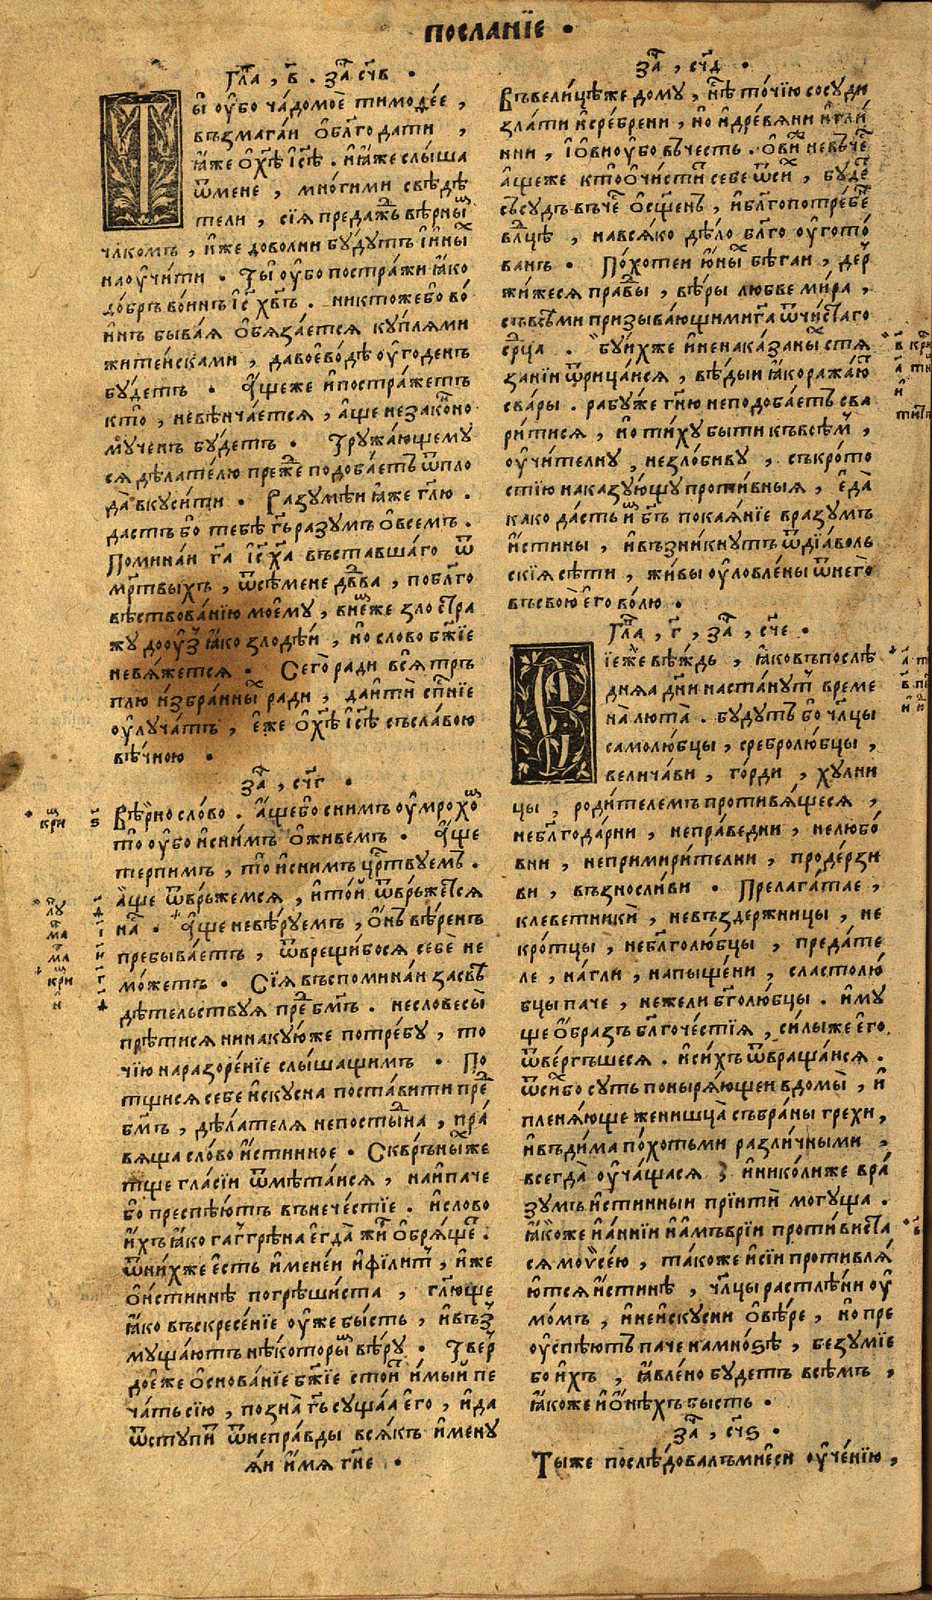 послание •
Гла҃, в҃ . за҃ сч҃в •
Ты оубо чадомое тимоѳее ,
възмагаи облгодати ,
ꙗже охѣ ісѣ . иꙗже слыша
ѿмене , многими свѣдѣ
тели , сіꙗ предажъ вѣрны
чл҃комъ , иже доволни будутъ ііны
наоучити . Ты оубо постражи ꙗко
добръ воинъ іс҃ хв҃ъ . никтожебо во
инъ бываꙗ обѧзается куплями
житеисками , давоеводѣ оугоденъ
будетъ . Ащеже ипостражетъ
кто , невѣнчается , аще незаконо
мученъ будетъ . Тружающему
ся дѣлателю преже подобаетъ ѿпло
да вкусити . Разумѣи ꙗже гл҃ю .
дастъ бо тебѣ гь҃разумъ овсемъ .
Поминаи га҃ іс҃ ха҃ въставшаго ѿ
мр҃твыхъ , ѿсѣмене дв҃ва , поблг҃о
вѣствованію моему , внеже зло стра
жу дооузъ ꙗко злодѣи , но слово бж҃іе
невѧжется . Сего ради вся тръ
плю избранны ради , даиті сп҃ніе
оулучатъ , еже охѣ ісѣ съславою
вѣчною •
за҃ , сч҃г •
Вѣрно слово . Ащебо снимъ оумрохо
то оубо иснимъ оживемъ . Аще
терпимъ , то иснимъ цр҃твуемъ .
аще ѿвръжемся , итои ѿвръжется
на . Аще невѣруемъ , онъ вѣренъ
пребываетъ , ѿврещибося себе не
можетъ . Сіꙗ въспоминаи засвѣ
дѣтельствуꙗ пре бм҃ъ . несловесы
прѣтися нинакуюже потребу , то
чію наразореніе слышащимъ . По
тщися себе искусна поставити пре
бм҃ъ , дѣлателя непостына , пра
вѧща слово истинное . Сквръныже
тще гласіи ѿметаися , наипаче
бо преспѣютъ внечестіе . ислово
ихъ ꙗко гаггрена егда жи обрѧще .
ѿнихже есть именеи ифілит , иже
оистиннѣ погрѣшиста , гл҃юще
ꙗко въскресеніе оуже бысть , ивъз
мущаютъ нѣкоторы вѣру . Твер
доеже основаніе бж҃іе стои имыи пе
чать сію , позна гь҃сущаа его , ида
ѿступи ѿнеправды всѧкъ имену
ꙗи имя гн҃е •
за҃ , сч҃д •
Въвелицѣже дому , не точію сосуди
злати исребрени , но идревѧни игли
ни , іовиоубо въчесть . ови невъче
ащеже ктоочистит себе ѿси , буде
съсудъ въче осщ҃енъ , иблг҃опотребе
вл҃цѣ , навсѧко дѣло блг҃о оугото
ванъ . Похотеи юны бѣгаи , дер
жижеся правы , вѣры любве мира ,
съвсѣми призывающимига ѿчистаго
ср҃ца . Буихже иненаказаны стѧ
заніи ѿрицаися , вѣдыи ꙗкоражаю
свары . рабуже гн҃ю неподобаетъ сва
ритися , но тиху быти къвсѣм ,
оучителну , незлобиву , съкрото
стію наказующу противныя , еда
како дасть и бг҃ъ покаяніе вразумъ
истины , ивъзникнутъ ѿдіаволь
скія сѣти , живы оуловлены ѿнего
въсвою его волю •
Гла҃ , г҃ , за҃ , сч҃е •
Сіеже вѣждь , ꙗковъпослѣ
днѧа дн҃и настанут време
на люта . будутъ бо чл҃цы
самолюбцы , сребролюбцы ,
величави , горди , хулни
цы , родителемъ противѧщеся ,
неблг҃одарни , неправедни , нелюбо
вни , непримирителни , продерзи
ви , възносливи . Прелагатае ,
клеветники , невъздержницы , не
кротцы , неблг҃олюбцы , предате
ле , нагли , напыщени , сластолю
бцы паче , нежели бг҃олюбцы . иму
ще образъ блг҃очестія , силыже его
ѿвергъшеся . исихъ ѿвращаися .
ѿсибо суть поныряющеи вдомы , и
пленяюще женищца събраны грехи ,
ивъдима похотьми различными ,
всегда оучащася , иниколиже вра
зумъ истинныи пріити могуща .
ꙗкоже иаинніи иамъвріи противиста
ся моусею , такоже исіи противля
ются истиннѣ , чл҃цы растлѣни оу
момъ , инеискусни овѣре , но пре
оуспѣютъ паче намнозѣ , безуміе
бо ихъ , ꙗвлено будетъ всѣмъ ,
ꙗкоже ионѣхъ бысть .
за҃ , сч҃ѕ •
Тыже послѣдовалъмиеси оученію ,